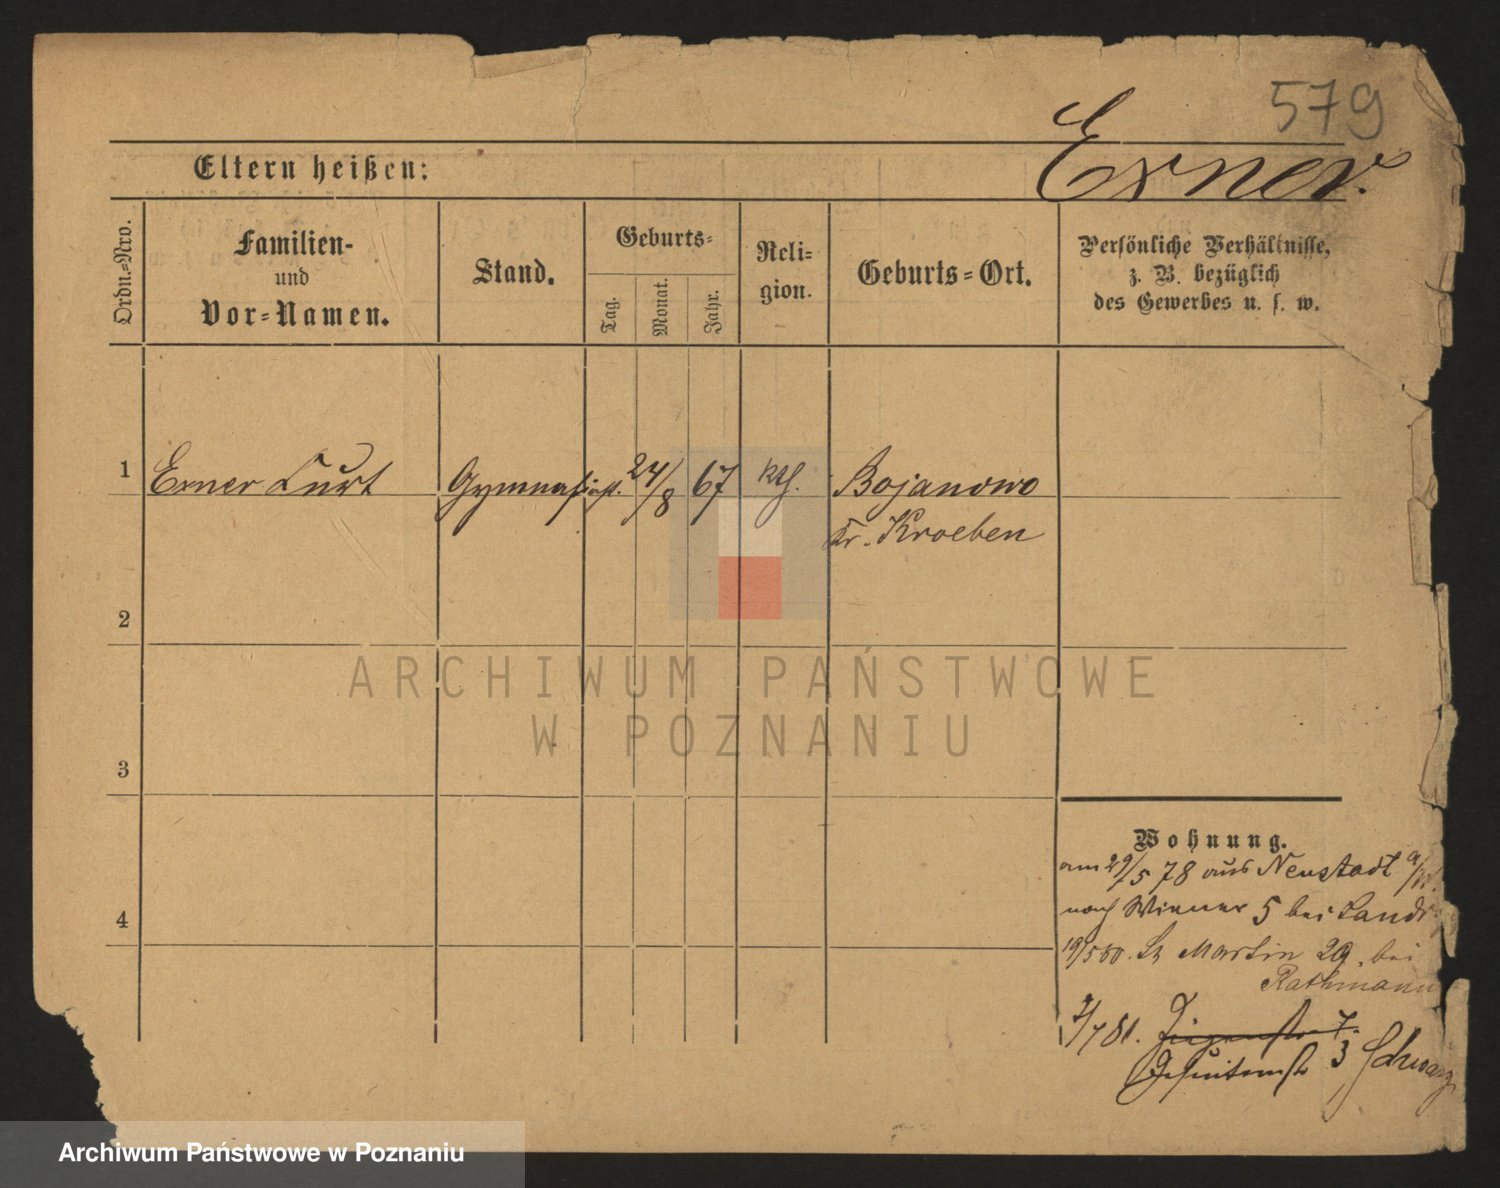 579
Exner.
Eltern heißen:
Ordn.-Nro.
Familien-
und
Vor-Namen.
Stand.
Geburts-
Tag.
Monat.
Jahr.
Reli-
gion.
Geburts-Ort.
Persönliche Verhältnisse,
z. B. bezüglich
des Gewerbes u. s. w.
1 Exner Curt Gymnasiast. 24/8 67 kth. Bojanowo
Kr. Kroeben
2
3
4
ARCHIWUM PAŃSTWOWE
W POZNANIU
Wohnung.
am 29/5 78 aus Neustadt
nach Wiener 5 bei
19/5 80. St Martin 29. bei
Rathmann
7/7 81.
Jesuitenstr 3 Schwarz
Archiwum Państwowe w Poznaniu